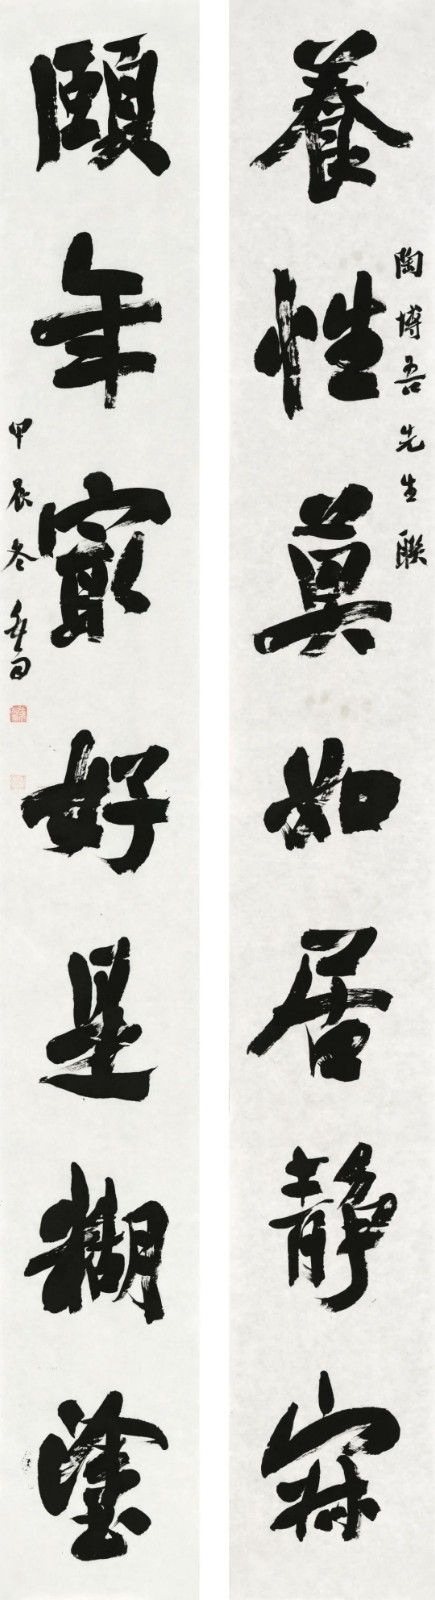 養性莫如居靜寂
陶博吾先生聯
頤年最好是糊塗
甲辰冬